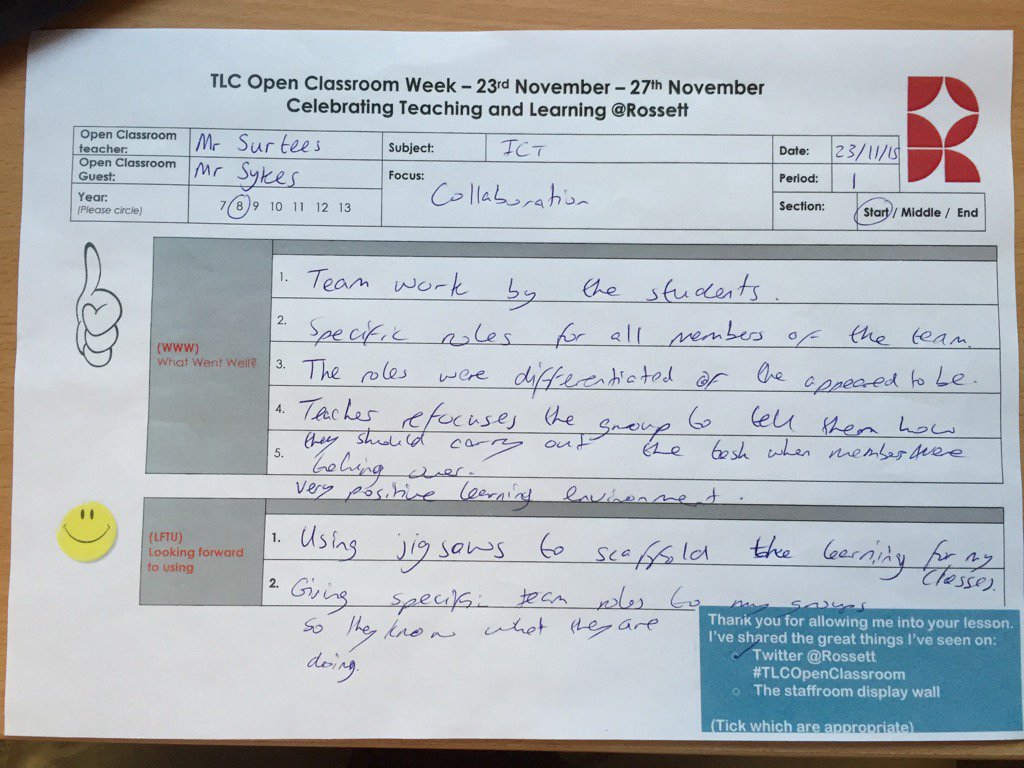 TLC Open Classroom Week – 23rd November – 27th November
Celebrating Teaching and Learning @Rossett
Open Classroom teacher: Mr Surtees Subject: ICT Date: 23/11/15
Open Classroom Guest: Mr Sykes Focus: Collaboration Period: 1
Year: (Please circle) 7 8 9 10 11 12 13 Section: Start / Middle / End
(WWW)
What Went Well?
1. Team work by the students.
2. Specific roles for all members of the team.
3. The roles were differentiated or the appeared to be.
4. Teacher refocuses the group to tell them how
they should carry out the task when members were
5. taking over.
Very positive learning environment.
(LFTU)
Looking forward
to using
1. Using jigsaws to scaffold the learning for my
classes.
2. Giving specific team roles to my groups
so they know what they are
doing.
Thank you for allowing me into your lesson.
I've shared the great things I've seen on:
Twitter @Rossett
#TLCOpenClassroom
The staffroom display wall
(Tick which are appropriate)